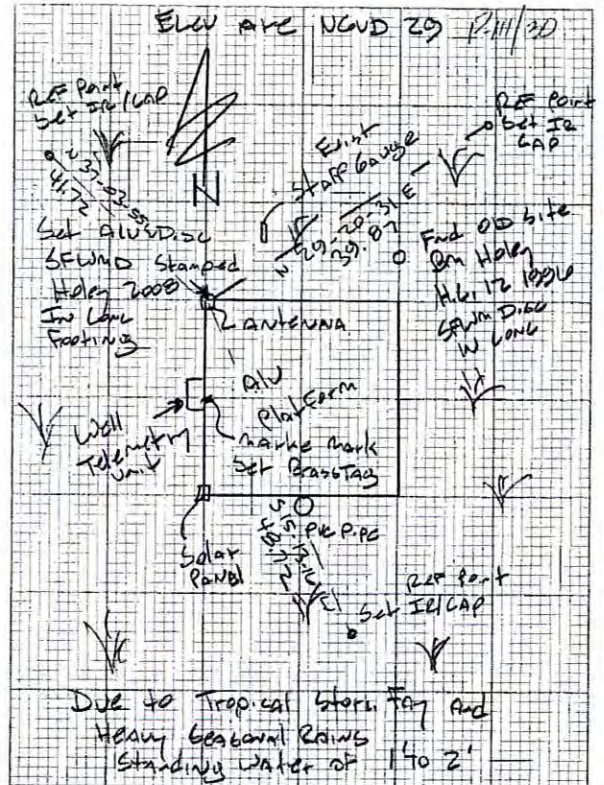 Elev are NGVD 29 P-111/30
Ref Point
Set IR/CAP
N 37-03-55
41.72
Exist
Staff Gauge
N 29-20-31 E
39.87
Ref Point
Set IR
CAP
Set ALUM Disc
SFWMD Stamped
Holey 2008
In Conc
Footing
Fnd Old Site
Bm Holey
H.L. 12 1996
SFWM Disc
IN CONC
ANTENNA
Alu
Platform
Well
Telemetry
Unit
Mark
Set Brass Tag
Solar
Panel
PVC Pipe
S 15-13-16 E
48.772
Ref Point
Set IR/CAP
Due to Tropical Storm Fay And
Heavy Seasonal Rains
Standing Water of 1' to 2'